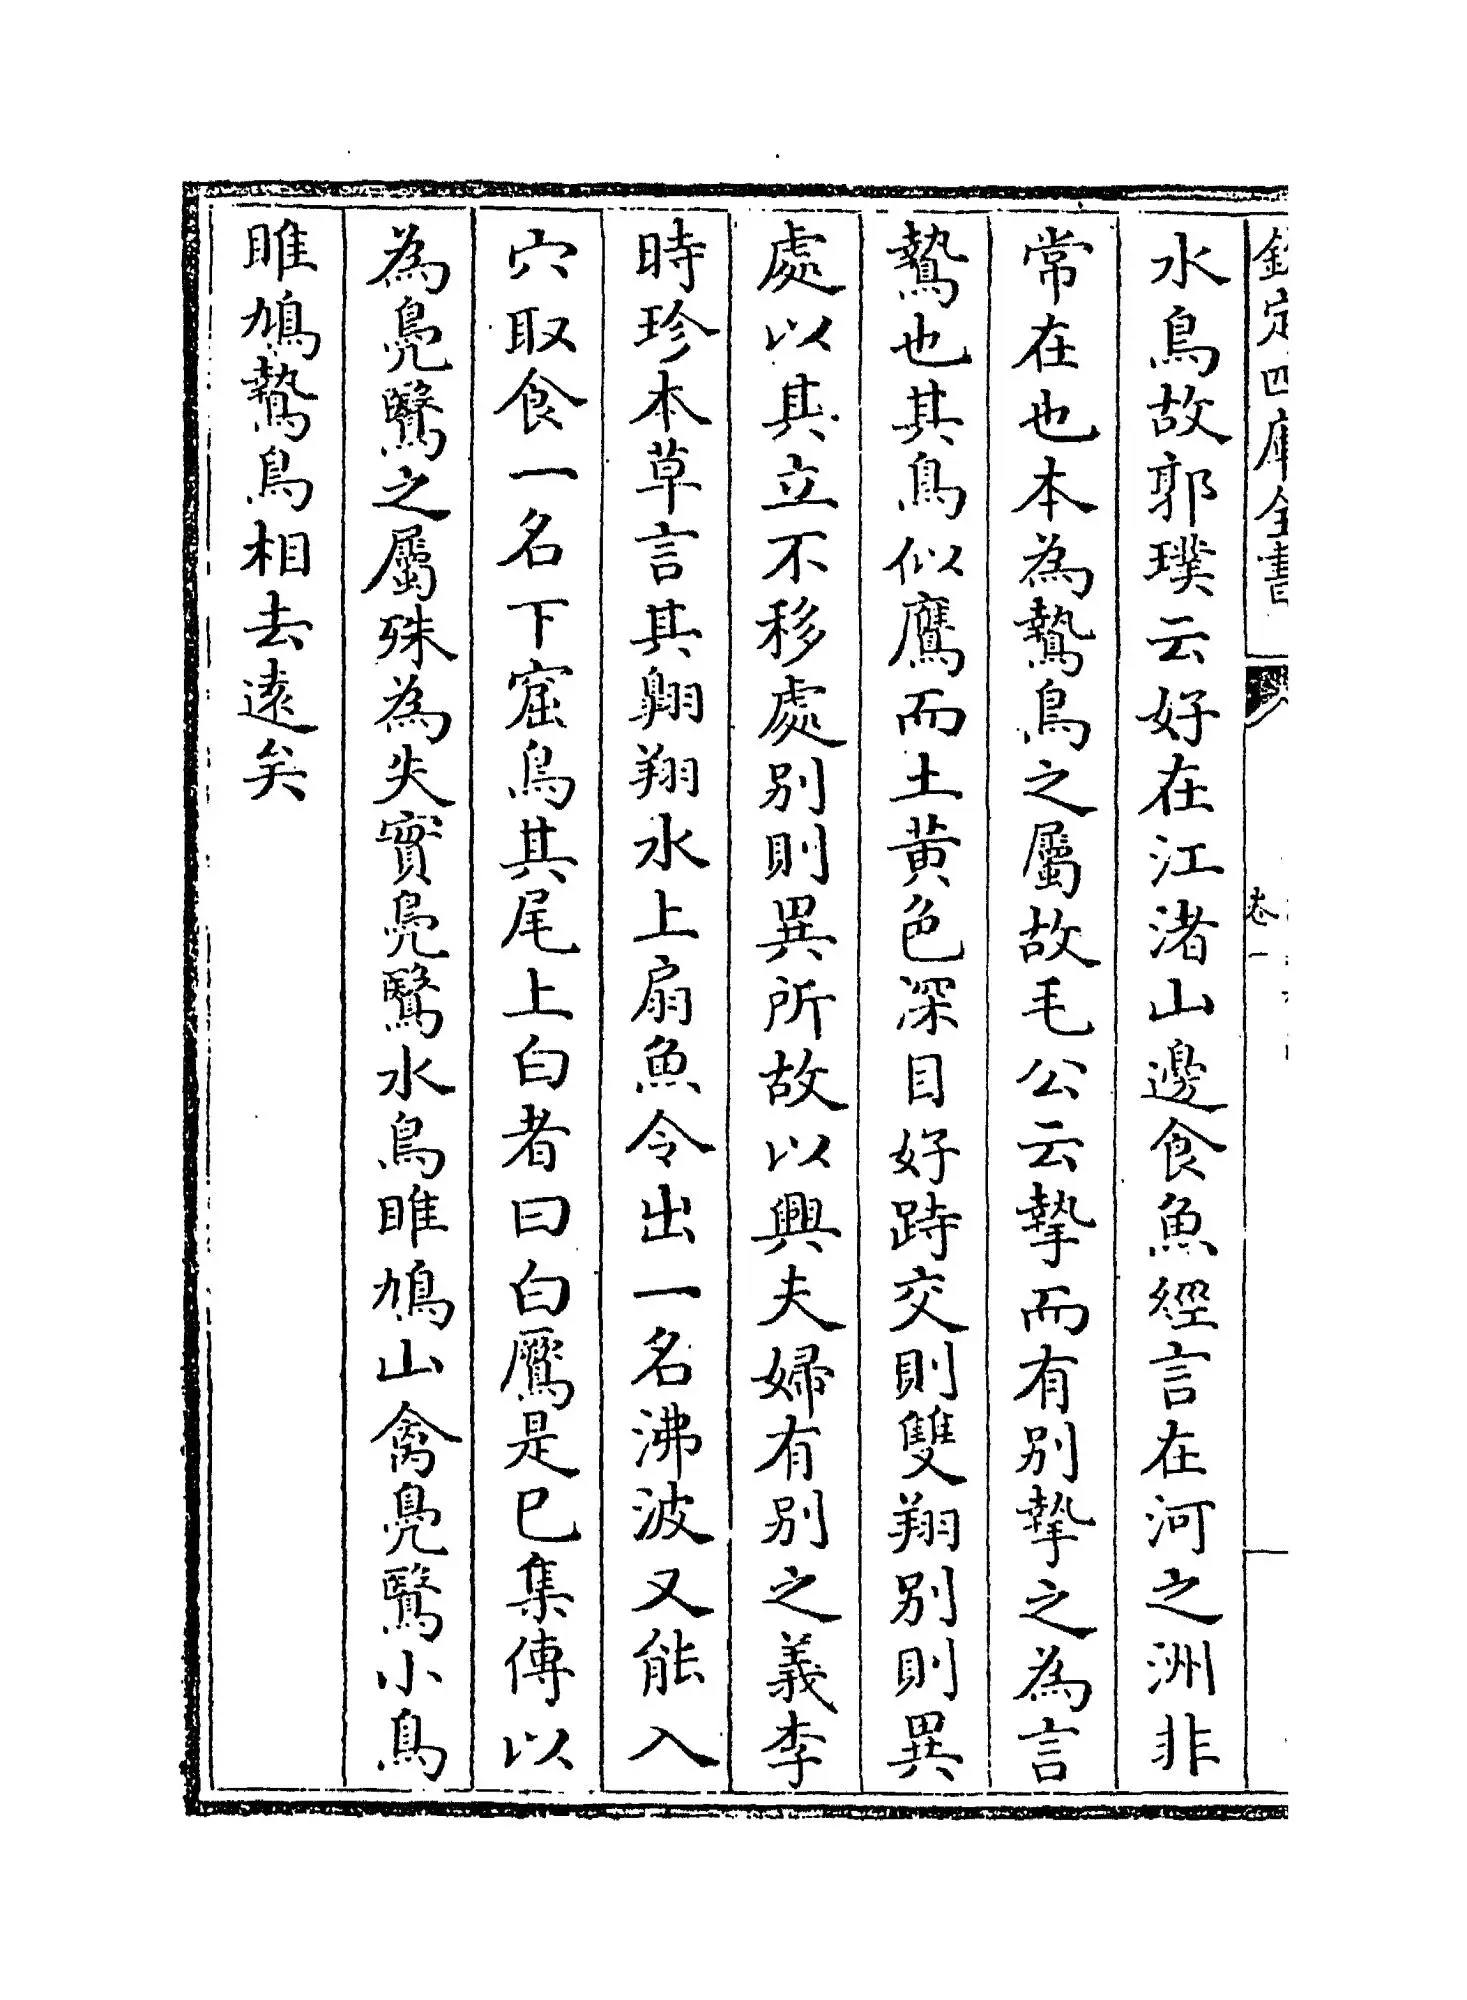 欽定四庫全書
卷一
水鳥故郭璞云好在江渚山邊食魚經言在河之洲非
常在也本為鷙鳥之屬故毛公云摯而有別摯之為言
鷙也其鳥似鷹而土黃色深目好跱交則雙翔別則異
處以其立不移處別則異所故以興夫婦有別之義李
時珍本草言其翺翔水上扇魚令出一名沸波又能入
穴取食一名下窟鳥其尾上白者曰白鷢是已集傳以
為鳧鷖之屬殊為失實鳧鷖水鳥雎鳩山禽鳧鷖小鳥
雎鳩鷙鳥相去遠矣